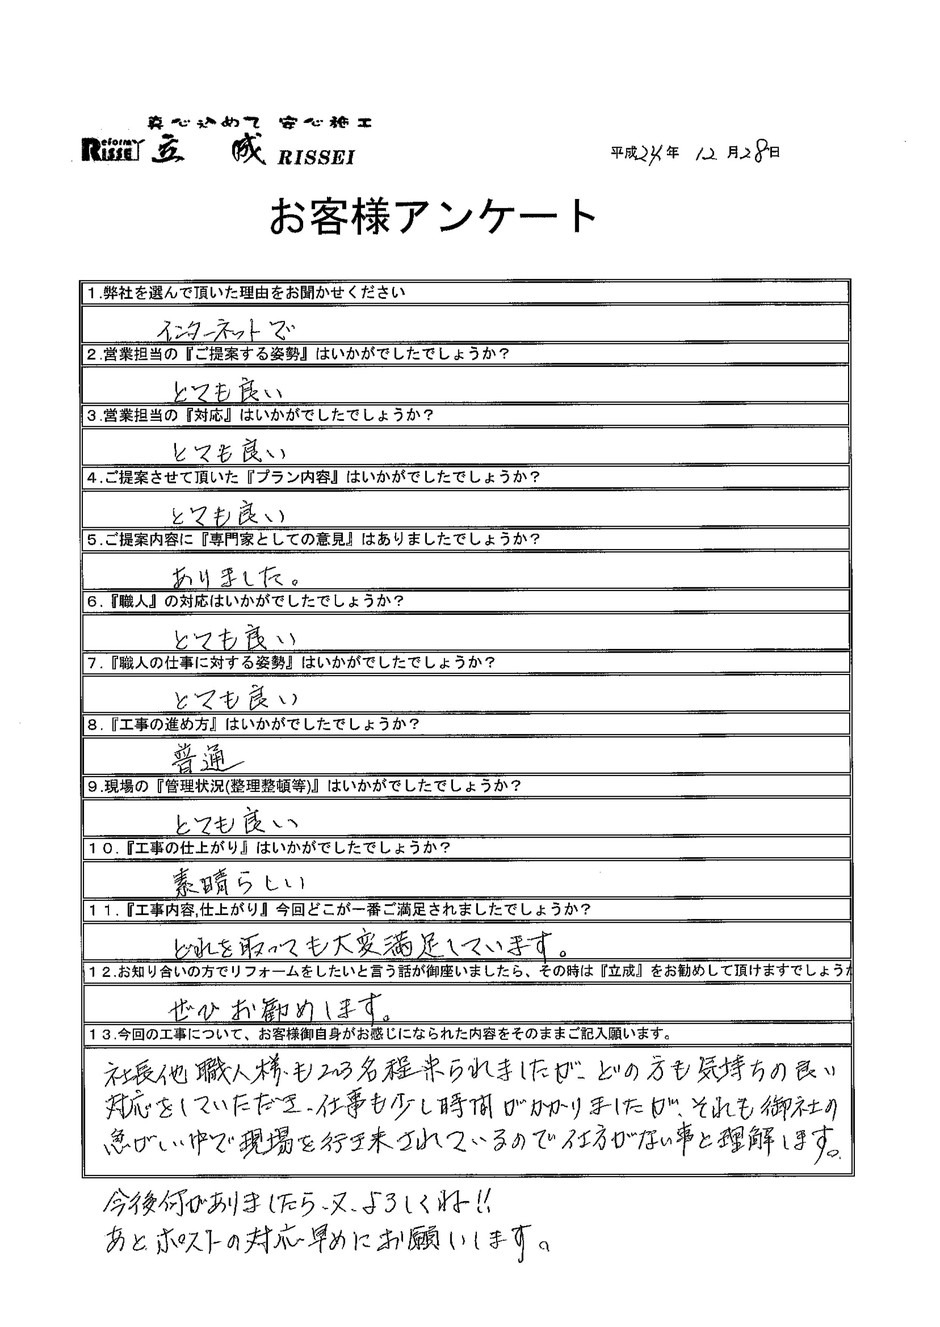 真心込めて 安心施工
Reform RISSEI 立成 RISSEI
平成24年 12月28日
お客様アンケート
1.弊社を選んで頂いた理由をお聞かせください
インターネットで
2.営業担当の『ご提案する姿勢』はいかがでしたでしょうか?
とても良い
3.営業担当の『対応』はいかがでしたでしょうか?
とても良い
4.ご提案させて頂いた『プラン内容』はいかがでしたでしょうか?
とても良い
5.ご提案内容に『専門家としての意見』はありましたでしょうか?
ありました。
6.『職人』の対応はいかがでしたでしょうか?
とても良い
7.『職人の仕事に対する姿勢』はいかがでしたでしょうか?
とても良い
8.『工事の進め方』はいかがでしたでしょうか?
普通
9.現場の『管理状況(整理整頓等)』はいかがでしたでしょうか?
とても良い
10.『工事の仕上がり』はいかがでしたでしょうか?
素晴らしい
11.『工事内容,仕上がり』今回どこが一番ご満足されましたでしょうか?
どれを取っても大変満足しています。
12.お知り合いの方でリフォームをしたいと言う話が御座いましたら、その時は『立成』をお勧めして頂けますでしょうか
ぜひお勧めします。
13.今回の工事について、お客様御自身がお感じになられた内容をそのままご記入願います。
社長他職人様も2〜3名程来られましたが、どの方も気持ちの良い
対応をしていただき、仕事も少し時間がかかりましたが、それも御社の
急がしい中で現場を行き来されているので仕方がない事と理解します。
今後何がありましたら、又、よろしくね!!
あと、ポストの対応早めにお願いします。